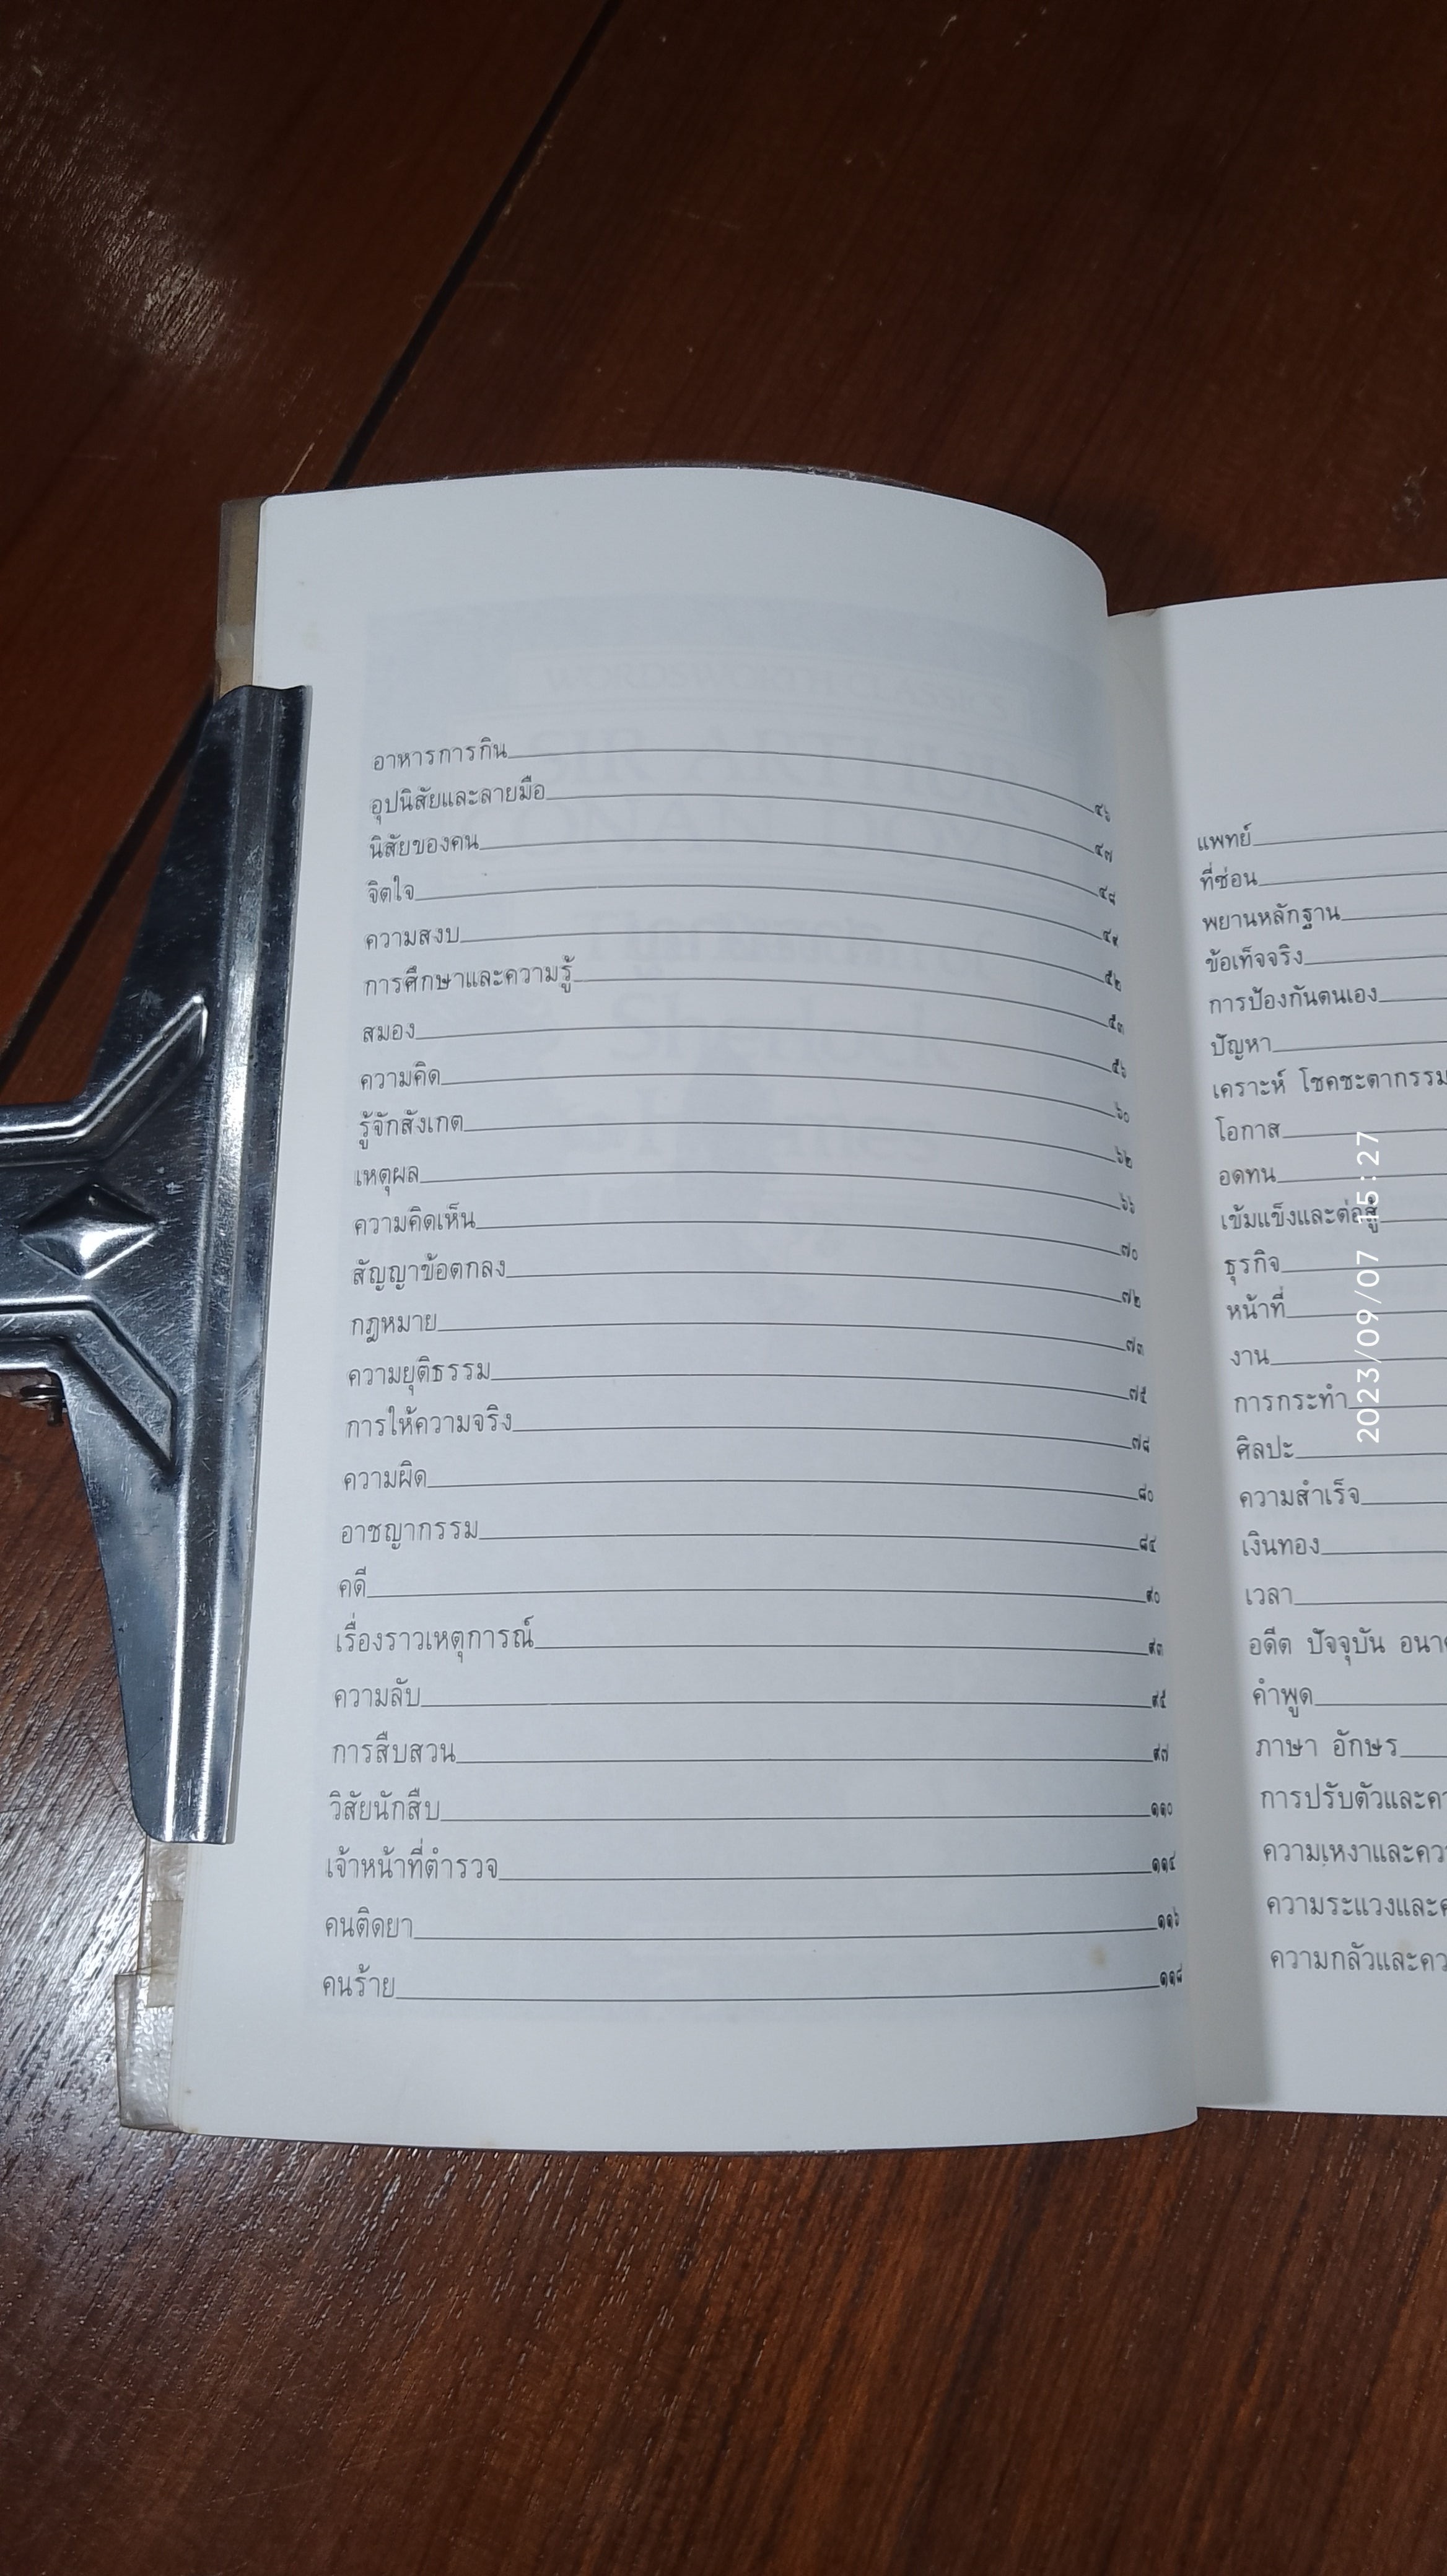 อาหารการกิน ๔๖
อุปนิสัยและลายมือ ๔๗
นิสัยของคน ๔๘
จิตใจ ๔๙
ความสงบ ๕๒
การศึกษาและความรู้ ๕๓
สมอง ๕๖
ความคิด ๖๐
รู้จักสังเกต ๖๒
เหตุผล ๖๖
ความคิดเห็น ๗๐
สัญญาข้อตกลง ๗๒
กฎหมาย ๗๓
ความยุติธรรม ๗๕
การให้ความจริง ๗๘
ความผิด ๘๐
อาชญากรรม ๘๔
คดี ๙๐
เรื่องราวเหตุการณ์ ๙๓
ความลับ ๙๕
การสืบสวน ๙๗
วิสัยนักสืบ ๑๑๐
เจ้าหน้าที่ตำรวจ ๑๑๔
คนติดยา ๑๑๖
คนร้าย ๑๑๘
แพทย์
ที่ซ่อน
พยานหลักฐาน
ข้อเท็จจริง
การป้องกันตนเอง
ปัญหา
เคราะห์ โชคชะตากรรม
โอกาส
อดทน
เข้มแข็งและต่อสู้
ธุรกิจ
หน้าที่
งาน
การกระทำ
ศิลปะ
ความสำเร็จ
เงินทอง
เวลา
อดีต ปัจจุบัน
คำพูด
ภาษา อักษร
การปรับตัวและ
ความเหงาและ
ความระแวงและ
ความกลัวและ
2023/09/07 15:27